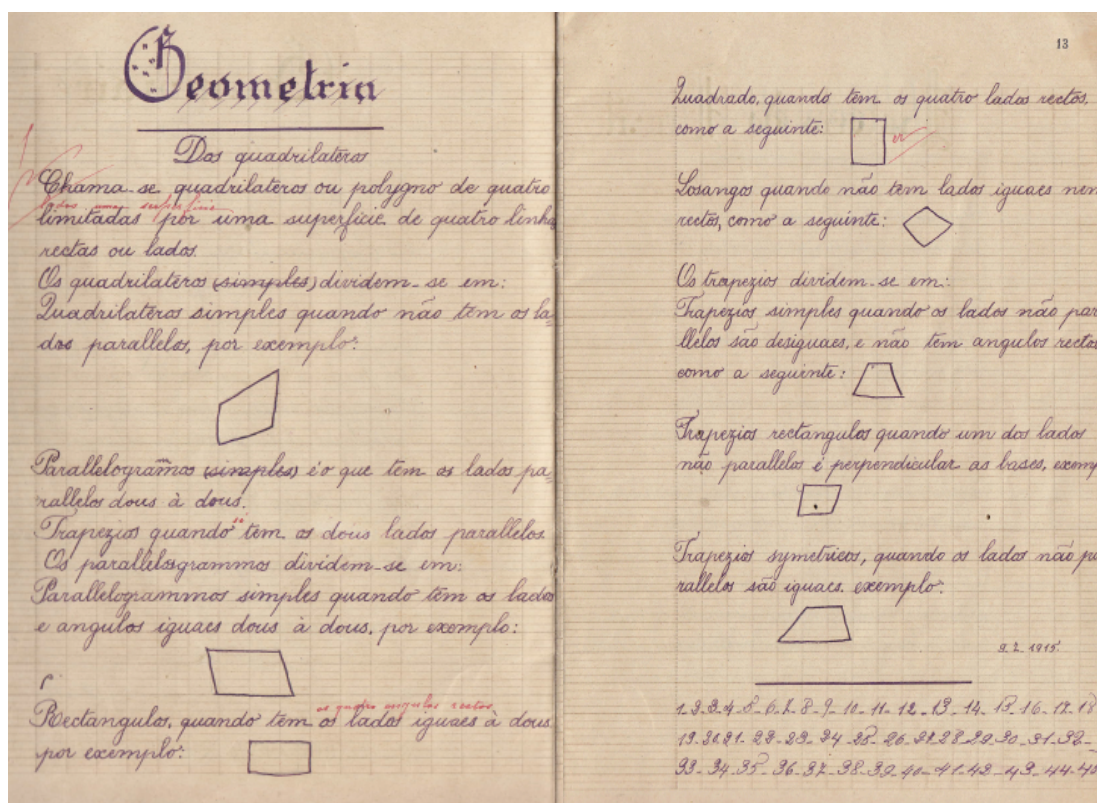 Geometria
Dos quadrilateros
Chama-se quadrilateros ou polygno de quatro
lados uma superficie
limitadas por uma superficie de quatro linha
rectas ou lados.
Os quadrilateros (simples) dividem-se em:
Quadrilateros simples quando não tem os la=
dos parallelos, por exemplo:
Parallelogramos (simples) é o que tem os lados pa=
rallelos dous à dous.
só
Trapezios quando tem os dous lados parallelos.
Os parallelosgrammos dividem-se em:
Parallelogrammos simples quando tem os lados
e angulos iguaes dous à dous, por exemplo:
os quatro angulos rectos
Rectangulos, quando tem os lados iguaes à dous
por exemplo:
13
Quadrado, quando tem os quatro lados rectos,
como a seguinte:
Losangos quando não tem lados iguaes nem
rectos, como a seguinte:
Os trapezios dividem-se em:
Trapezios simples quando os lados não par
llelos são desiguaes, e não tem angulos rectos
como a seguinte:
Trapezios rectangulos quando um dos lados
não parallelos é perpendicular as bases, exemp
Trapezios symetricos, quando os lados não pa
rallelos são iguaes. exemplo:
9.2.1915.
1-2-3-4-5-6-7-8-9-10-11-12-13-14-15-16-17-18
19-20-21-22-23-24-25-26-27-28-29-30-31-32-
33-34-35-36-37-38-39-40-41-42-43-44-45